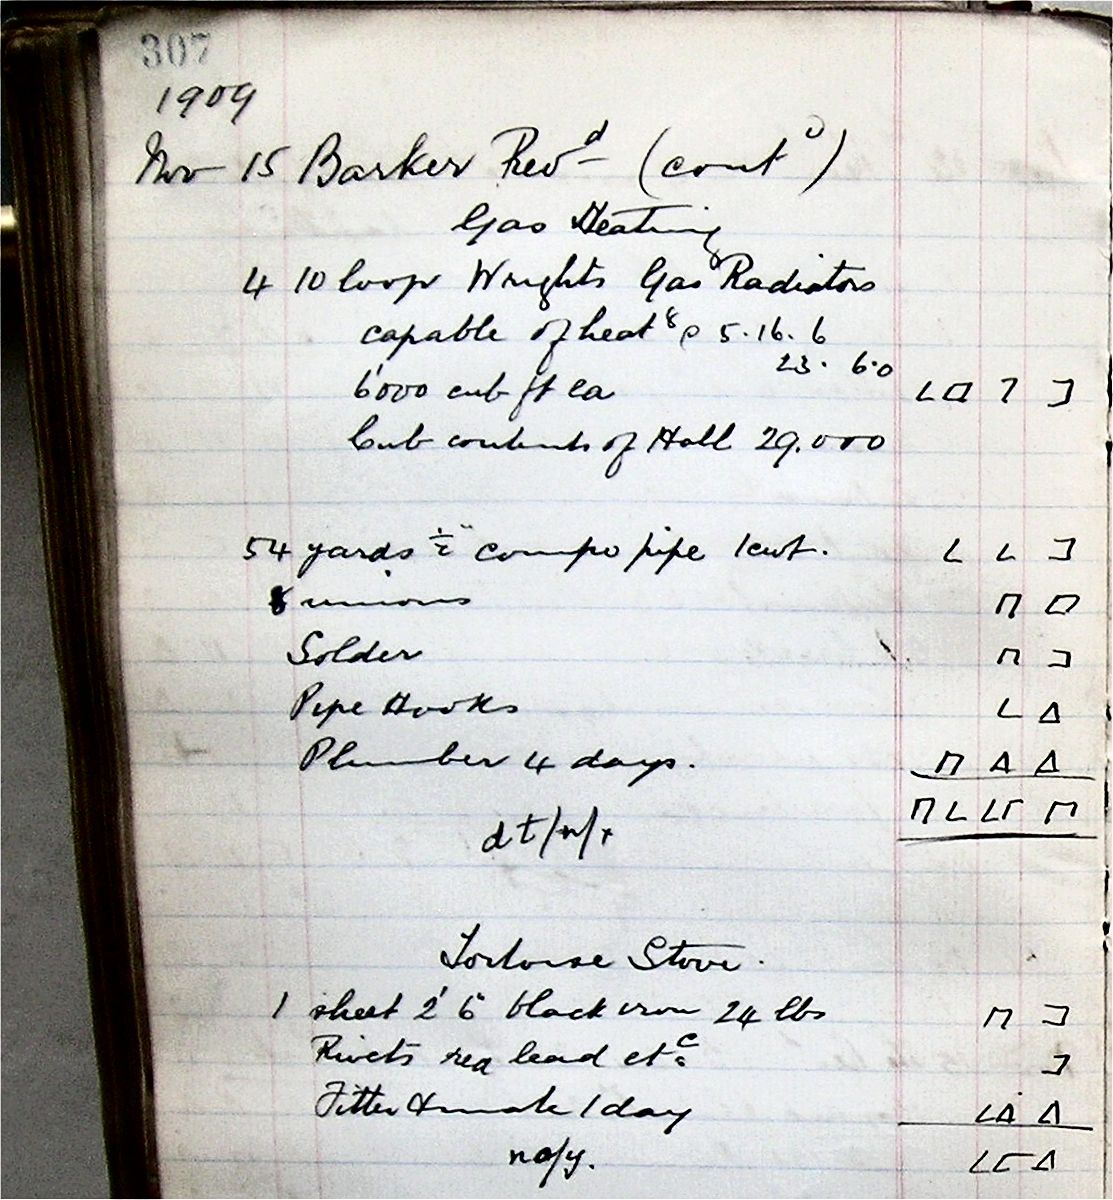 307
1909
Nov 15 Barker Revd (contd)
Gas Heating
4 10 loop Wrights Gas Radiators
capable of heatg @ 5.16.6
23. 6.0
6000 cub ft ea
Cub contents of Hall 29.000
54 yards ½" compo pipe 1cwt.
8 unions
Solder
Pipe Hooks
Plumber 4 days.
dt/n/r
Tortoise Stove.
1 sheet 2' 6" black iron 24 lbs
Rivets red lead etc
Fitter & mate 1 day
no/y.